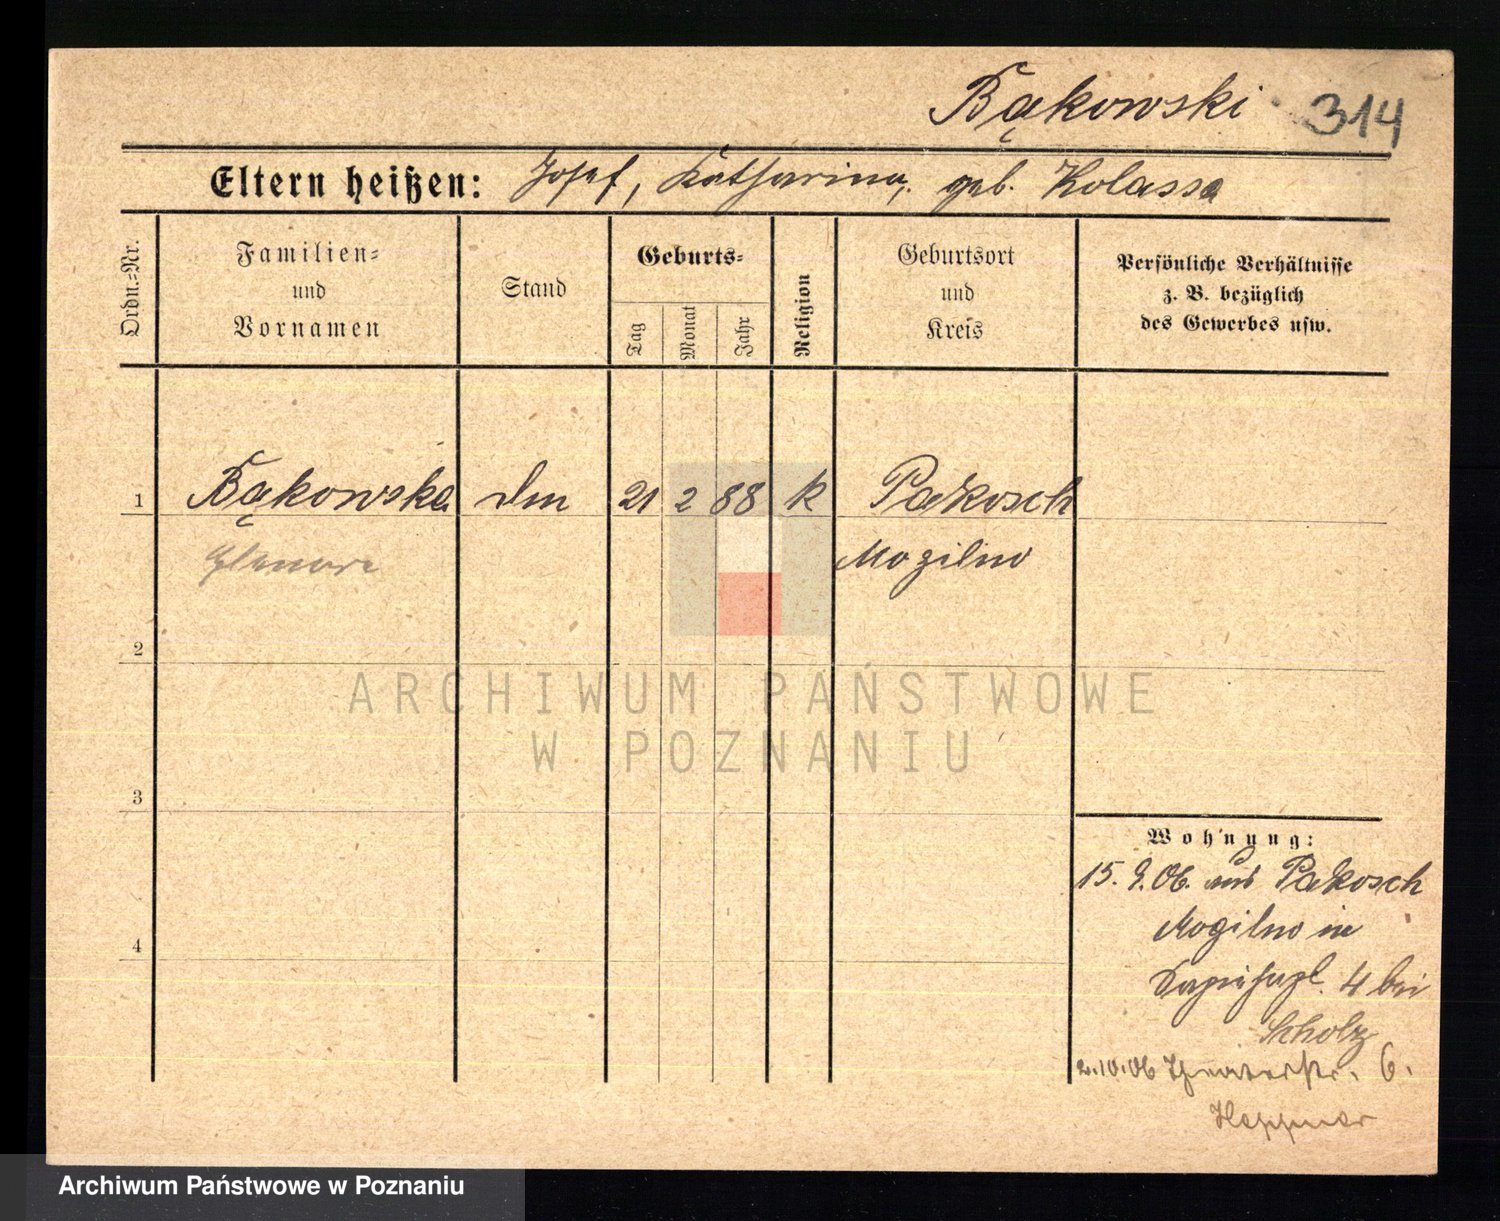 Bąkowski 314
Eltern heißen: Josef, Katharina, geb. Kolassa
Ordn.-Nr.
Familien-
und
Vornamen
Stand
Geburts-
Tag
Monat
Jahr
Religion
Geburtsort
und
Kreis
Persönliche Verhältnisse
z. B. bezüglich
des Gewerbes usw.
1 Bąkowska 21 2 88 k Pakosch
Elenore Mogilno
2
ARCHIWUM PAŃSTWOWE
W POZNANIU
3
Wohnung:
15. 9. 06. aus Pakosch
Mogilno in
4
Sapiehapl. 4 bei
Scholz
2.10.06 Theaterstr. 6.
Archiwum Państwowe w Poznaniu